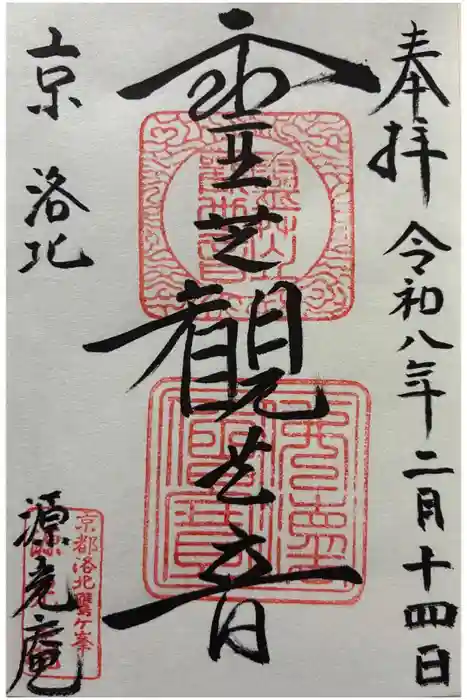 奉拝 令和八年二月十四日
霊芝観世音
京 洛北
源光庵
京都洛北鷹ケ峯